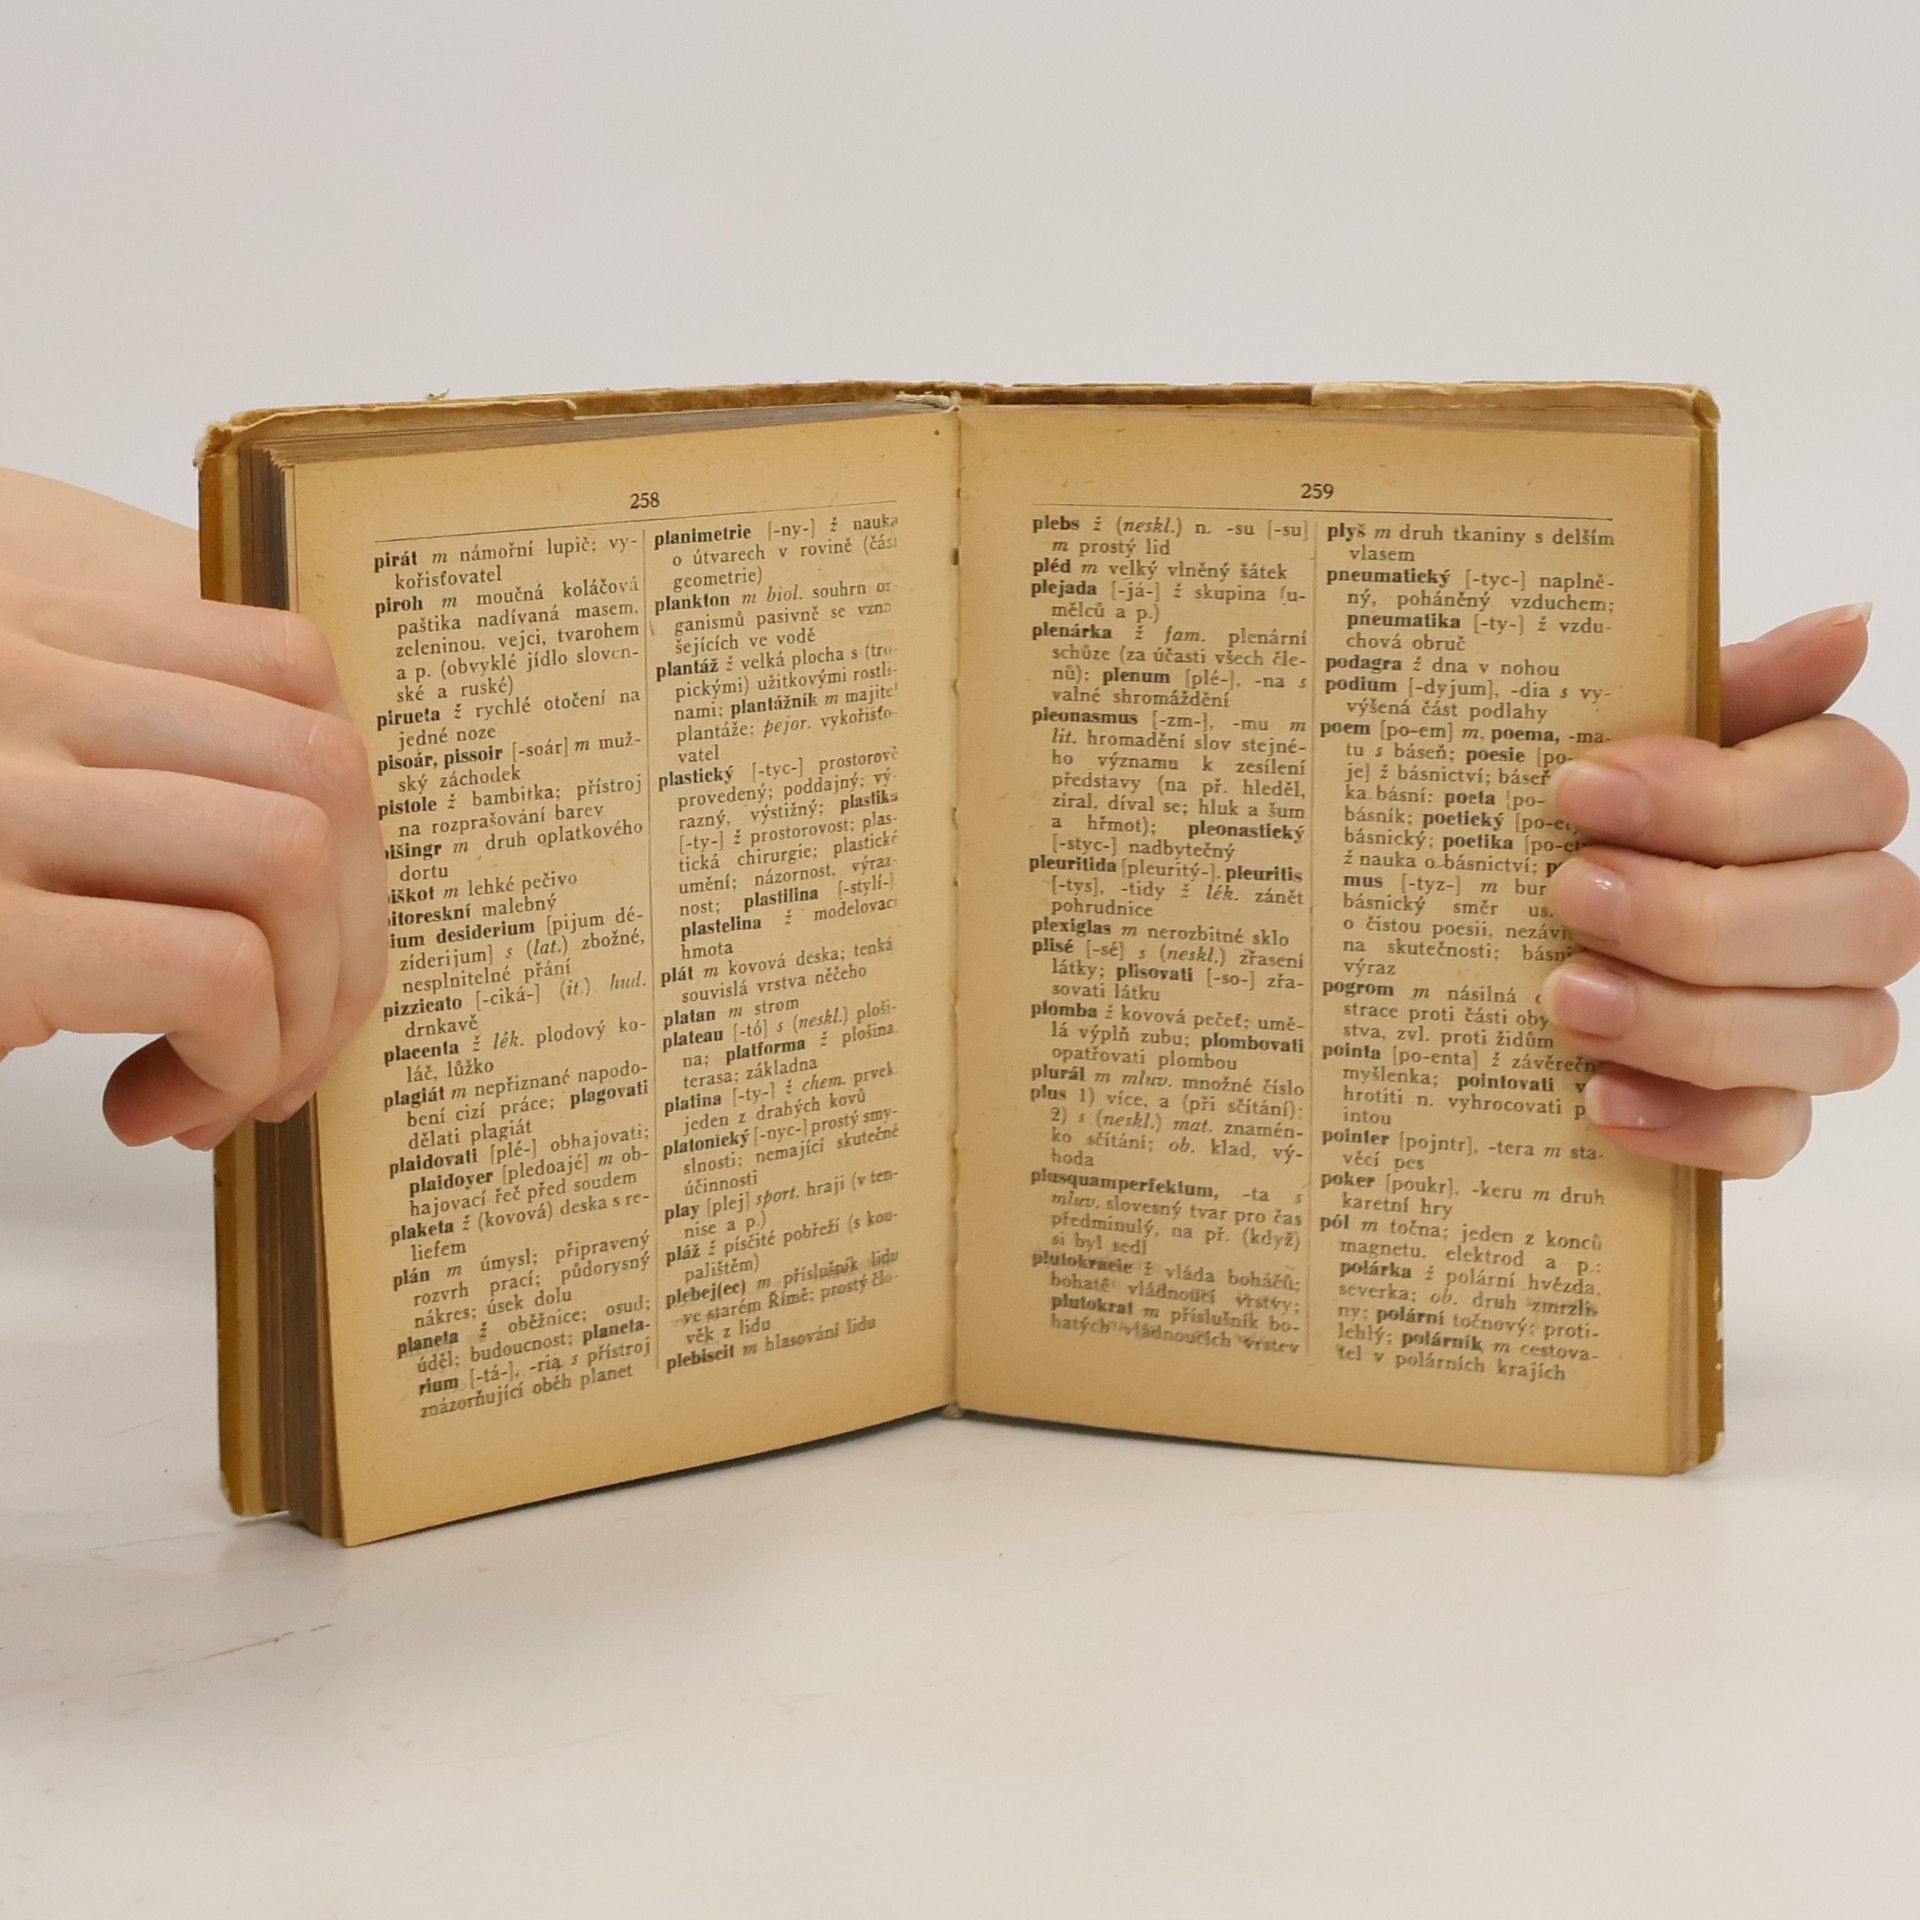 258
pirát m námořní lupič; vy-
kořisťovatel
piroh m moučná koláčová
paštika nadívaná masem,
zeleninou, vejci, tvarohem
a p. (obvyklé jídlo sloven-
ské a ruské)
pirueta ž rychlé otočení na
jedné noze
pisoár, pissoir [-soár] m muž-
ský záchodek
pistole ž bambitka; přístroj
na rozprašování barev
išingr m druh oplatkového
dortu
iškot m lehké pečivo
itoreskní malebný
ium desiderium [pijum dé-
ziderijum] s (lat.) zbožné,
nesplnitelné přání
pizzicato [-ciká-] (it.) hud.
drnkavě
placenta ž lék. plodový ko-
láč, lůžko
plagiát m nepřiznané napodo-
bení cizí práce; plagovati
dělati plagiát
plaidovati [plé-] obhajovati;
plaidoyer [pledoajé] m ob-
hajovací řeč před soudem
plaketa ž (kovová) deska s re-
liefem
plán m úmysl; připravený
rozvrh prací; půdorysný
nákres; úsek dolu
planeta ž oběžnice; osud;
úděl; budoucnost; planeta-
rium [-tá-], -ria s přístroj
znázorňující oběh planet
planimetrie [-ny-] ž nauka
o útvarech v rovině (část
geometrie)
plankton m biol. souhrn or-
ganismů pasivně se vzná-
šejících ve vodě
plantáž ž velká plocha s (tro-
pickými) užitkovými rostli-
nami; plantážník m majitel
plantáže; pejor. vykořisťo-
vatel
plastický [-tyc-] prostorově
provedený; poddajný; vý-
razný, výstižný; plastika
[-ty-] ž prostorovost; plas-
tická chirurgie; plastické
umění; názornost, výraz-
nost; plastilina [-stylí-]
plastelina ž modelovací
hmota
plát m kovová deska; tenká
souvislá vrstva něčeho
platan m strom
plateau [-tó] s (neskl.) ploši-
na; platforma ž plošina
terasa; základna
platina [-ty-] ž chem. prvek
jeden z drahých kovů
platonický [-nyc-] prostý smy-
slnosti; nemající skutečné
účinnosti
play [plej] sport. hraji (v ten-
nise a p.)
pláž ž písčité pobřeží (s kou-
palištěm)
plebej(ec) m příslušník lidu
ve starém Římě; prostý člo-
věk z lidu
plebiscit m hlasování lidu
259
plebs ž (neskl.) n. -su [-su]
m prostý lid
pléd m velký vlněný šátek
plejada [-já-] ž skupina (u-
mělců a p.)
plenárka ž fam. plenární
schůze (za účasti všech čle-
nů); plenum [plé-], -na s
valné shromáždění
pleonasmus [-zm-], -mu m
lit. hromadění slov stejné-
ho významu k zesílení
představy (na př. hleděl,
zíral, díval se; hluk a šum
a hřmot); pleonastický
[-styc-] nadbytečný
pleuritida [pleuritý-], pleuritis
[-tys], -tidy ž lék. zánět
pohrudnice
plexiglas m nerozbitné sklo
plisé [-sé] s (neskl.) zřasení
látky; plisovati [-so-] zřa-
sovati látku
plomba ž kovová pečeť; umě-
lá výplň zubu; plombovati
opatřovati plombou
plurál m mluv. množné číslo
plus 1) více, a (při sčítání);
2) s (neskl.) mat. znamén-
ko sčítání; ob. klad, vý-
hoda
plusquamperfektum, -ta s
mluv. slovesný tvar pro čas
předminulý, na př. (když)
si byl sedl
plutokracie ž vláda boháčů;
bohaté vládnoucí vrstvy;
plutokrat m příslušník bo-
hatých vládnoucích vrstev
plyš m druh tkaniny s delším
vlasem
pneumatický [-tyc-] naplně-
ný, poháněný vzduchem;
pneumatika [-ty-] ž vzdu-
chová obruč
podagra ž dna v nohou
podium [-dyjum], -dia s vy-
výšená část podlahy
poem [po-em] m, poema, -ma-
tu s báseň; poesie [po-
je] ž básnictví; báseň
ka básní; poeta [po-
básník; poetický [po-et
básnický; poetika [po-et
ž nauka o básnictví; p
mus [-tyz-] m bur
básnický směr us
o čistou poesii, nezávi
na skutečnosti; básni
výraz
pogrom m násilná
strace proti části oby
stva, zvl. proti židům
pointa [po-enta] ž závěrečn
myšlenka; pointovati v
hrotiti n. vyhrocovati p
intou
pointer [pojntr], -tera m sta-
věcí pes
poker [poukr], -keru m druh
karetní hry
pól m točna; jeden z konců
magnetu, elektrod a p.;
polárka ž polární hvězda,
severka; ob. druh zmrzli-
ny; polární točnový; proti-
lehlý; polárník m cestova-
tel v polárních krajích